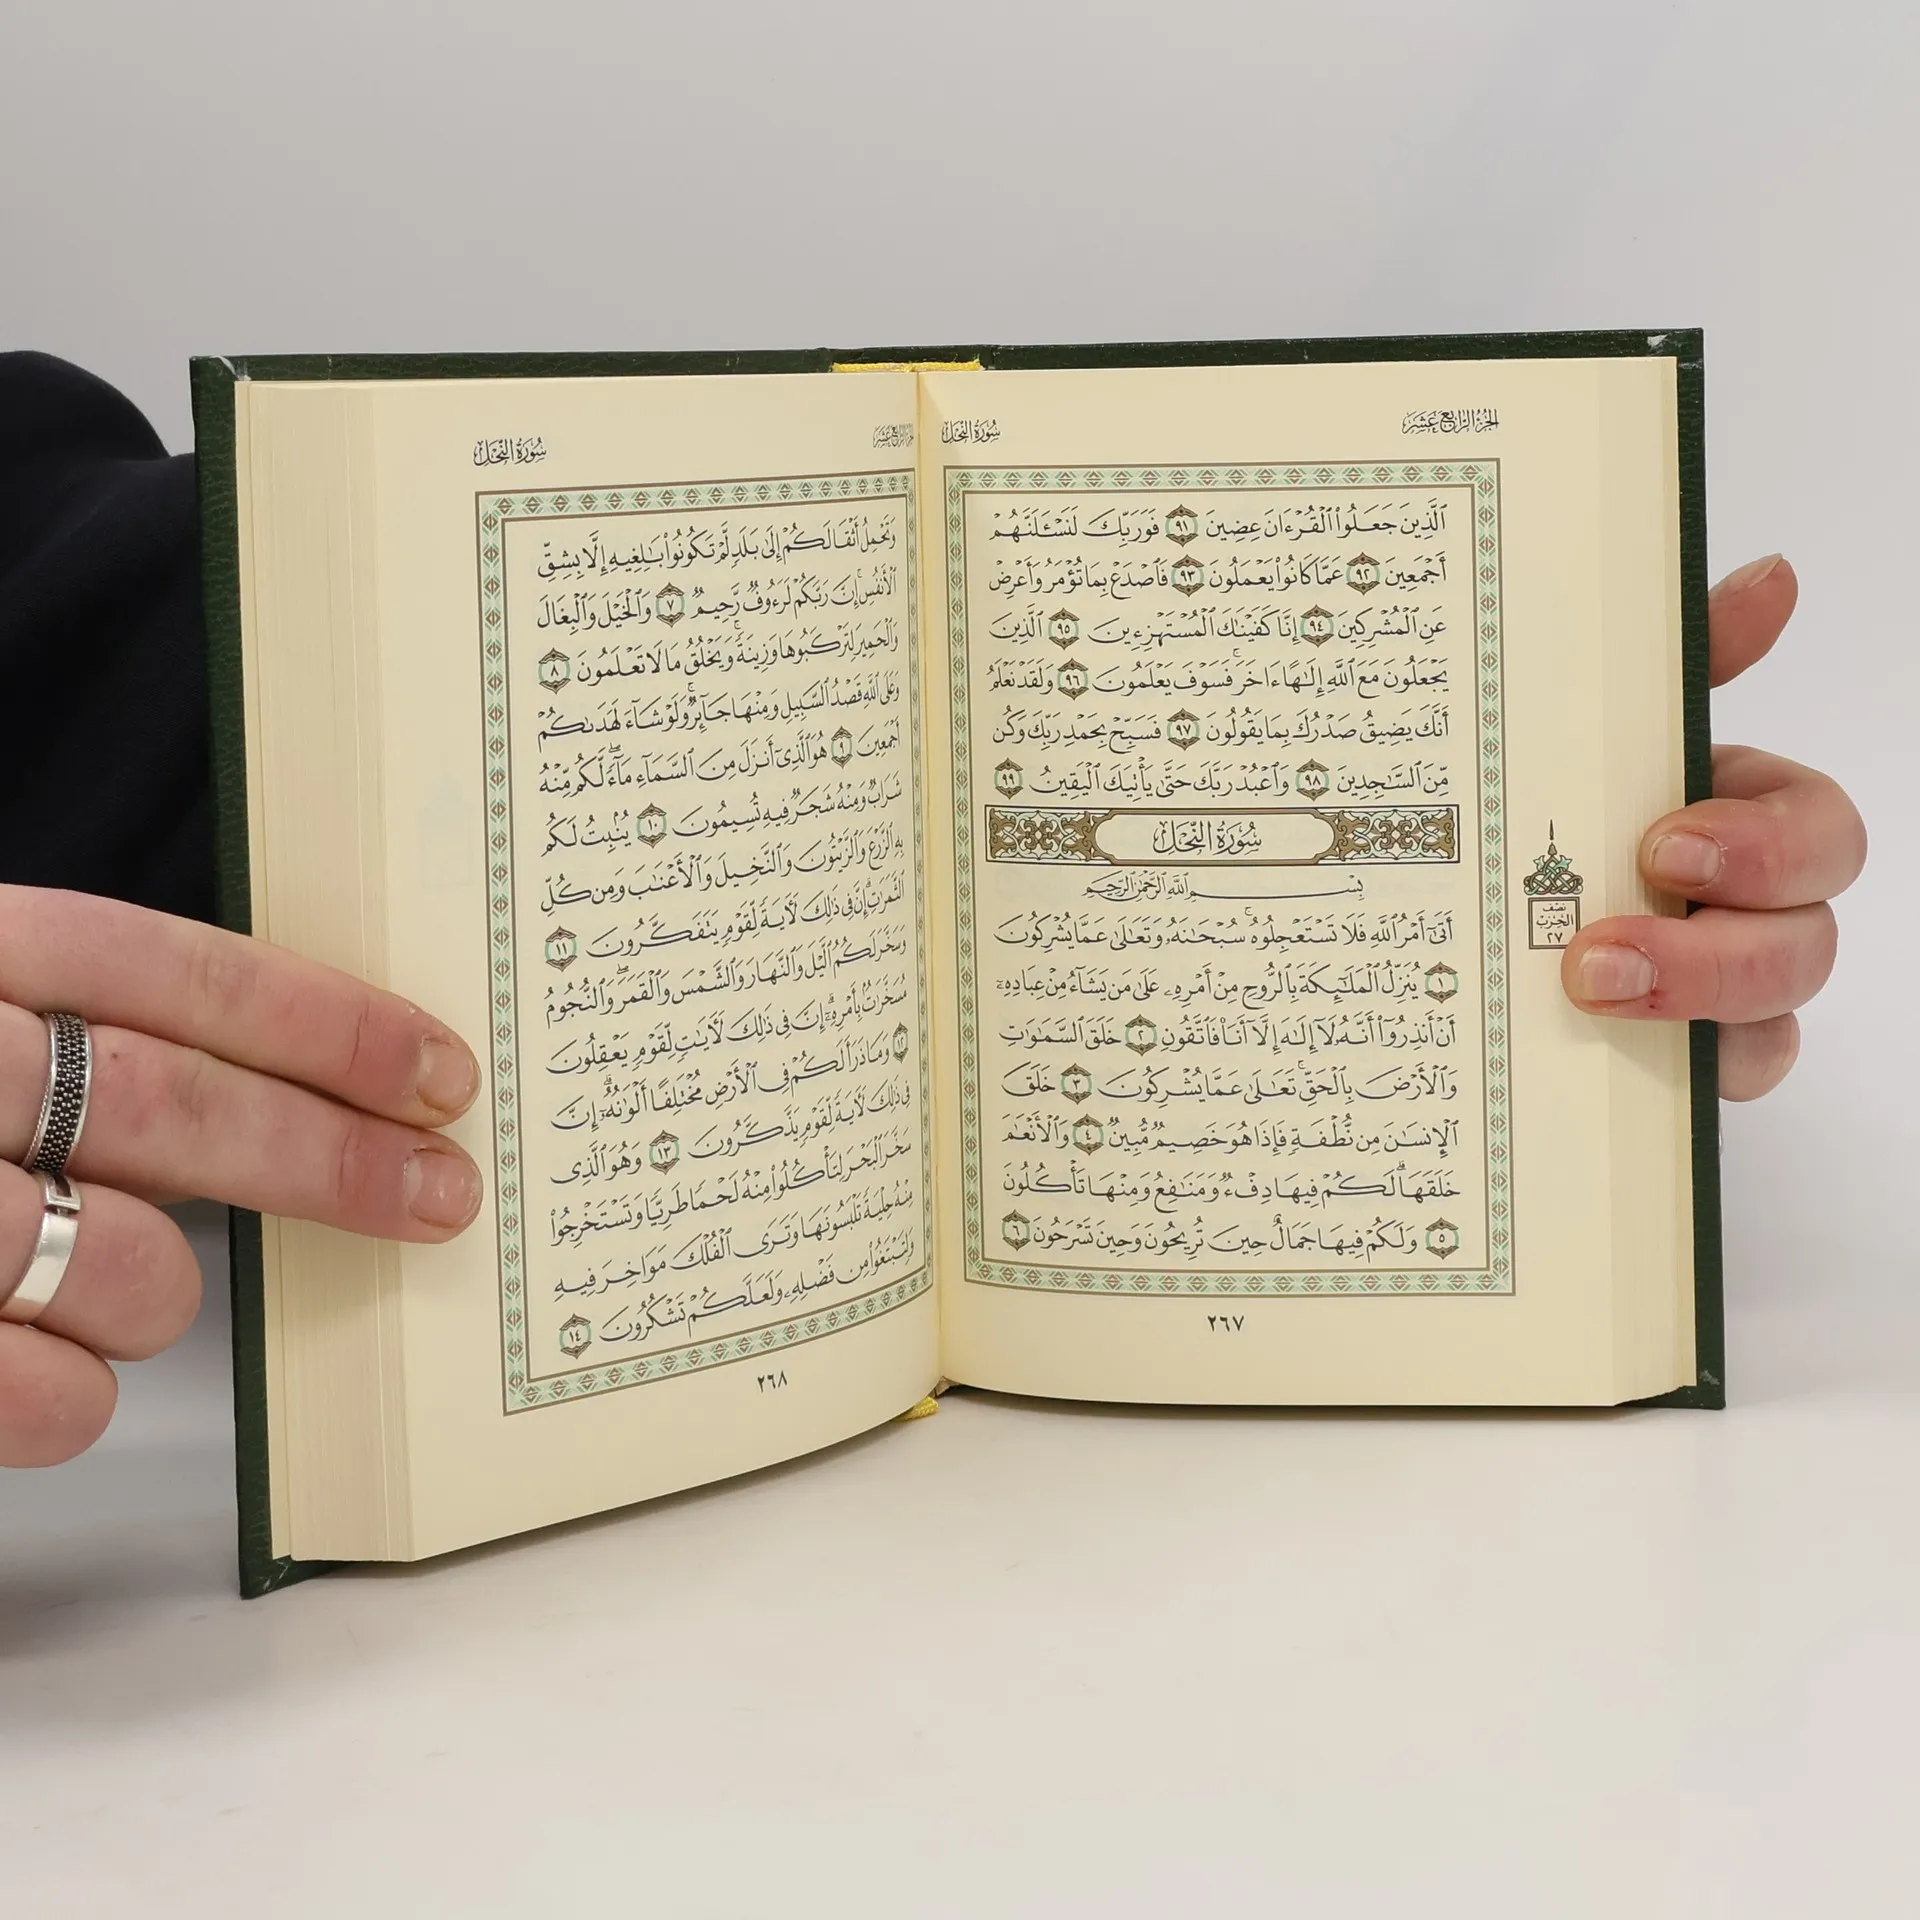 الجزء الرابع عشر
سورة النحل
ٱلَّذِينَ جَعَلُواْ ٱلۡقُرۡءَانَ عِضِينَ ٩١ فَوَرَبِّكَ لَنَسۡـَٔلَنَّهُمۡ
أَجۡمَعِينَ ٩٢ عَمَّا كَانُواْ يَعۡمَلُونَ ٩٣ فَٱصۡدَعۡ بِمَا تُؤۡمَرُ وَأَعۡرِضۡ
عَنِ ٱلۡمُشۡرِكِينَ ٩٤ إِنَّا كَفَيۡنَٰكَ ٱلۡمُسۡتَهۡزِءِينَ ٩٥ ٱلَّذِينَ
يَجۡعَلُونَ مَعَ ٱللَّهِ إِلَٰهًا ءَاخَرَۚ فَسَوۡفَ يَعۡلَمُونَ ٩٦ وَلَقَدۡ نَعۡلَمُ
أَنَّكَ يَضِيقُ صَدۡرُكَ بِمَا يَقُولُونَ ٩٧ فَسَبِّحۡ بِحَمۡدِ رَبِّكَ وَكُن
مِّنَ ٱلسَّٰجِدِينَ ٩٨ وَٱعۡبُدۡ رَبَّكَ حَتَّىٰ يَأۡتِيَكَ ٱلۡيَقِينُ ٩٩
سُورَةُ النَّحْلِ
بِسۡمِ ٱللَّهِ ٱلرَّحۡمَٰنِ ٱلرَّحِيمِ
أَتَىٰٓ أَمۡرُ ٱللَّهِ فَلَا تَسۡتَعۡجِلُوهُۚ سُبۡحَٰنَهُۥ وَتَعَٰلَىٰ عَمَّا يُشۡرِكُونَ
١ يُنَزِّلُ ٱلۡمَلَٰٓئِكَةَ بِٱلرُّوحِ مِنۡ أَمۡرِهِۦ عَلَىٰ مَن يَشَآءُ مِنۡ عِبَادِهِۦٓ
أَنۡ أَنذِرُوٓاْ أَنَّهُۥ لَآ إِلَٰهَ إِلَّآ أَنَا۠ فَٱتَّقُونِ ٢ خَلَقَ ٱلسَّمَٰوَٰتِ
وَٱلۡأَرۡضَ بِٱلۡحَقِّۚ تَعَٰلَىٰ عَمَّا يُشۡرِكُونَ ٣ خَلَقَ
ٱلۡإِنسَٰنَ مِن نُّطۡفَةٖ فَإِذَا هُوَ خَصِيمٞ مُّبِينٞ ٤ وَٱلۡأَنۡعَٰمَ
خَلَقَهَاۖ لَكُمۡ فِيهَا دِفۡءٞ وَمَنَٰفِعُ وَمِنۡهَا تَأۡكُلُونَ
٥ وَلَكُمۡ فِيهَا جَمَالٌ حِينَ تُرِيحُونَ وَحِينَ تَسۡرَحُونَ ٦
نصف
الحزب
٢٧
٢٦٧
الجزء الرابع عشر
سورة النحل
وَتَحۡمِلُ أَثۡقَالَكُمۡ إِلَىٰ بَلَدٖ لَّمۡ تَكُونُواْ بَٰلِغِيهِ إِلَّا بِشِقِّ
ٱلۡأَنفُسِۚ إِنَّ رَبَّكُمۡ لَرَءُوفٞ رَّحِيمٞ ٧ وَٱلۡخَيۡلَ وَٱلۡبِغَالَ
وَٱلۡحَمِيرَ لِتَرۡكَبُوهَا وَزِينَةٗۚ وَيَخۡلُقُ مَا لَا تَعۡلَمُونَ ٨
وَعَلَى ٱللَّهِ قَصۡدُ ٱلسَّبِيلِ وَمِنۡهَا جَآئِرٞۚ وَلَوۡ شَآءَ لَهَدَىٰكُمۡ
أَجۡمَعِينَ ٩ هُوَ ٱلَّذِيٓ أَنزَلَ مِنَ ٱلسَّمَآءِ مَآءٗۖ لَّكُم مِّنۡهُ
شَرَابٞ وَمِنۡهُ شَجَرٞ فِيهِ تُسِيمُونَ ١٠ يُنۢبِتُ لَكُم
بِهِ ٱلزَّرۡعَ وَٱلزَّيۡتُونَ وَٱلنَّخِيلَ وَٱلۡأَعۡنَٰبَ وَمِن كُلِّ
ٱلثَّمَرَٰتِۚ إِنَّ فِي ذَٰلِكَ لَأٓيَةٗ لِّقَوۡمٖ يَتَفَكَّرُونَ ١١
وَسَخَّرَ لَكُمُ ٱلَّيۡلَ وَٱلنَّهَارَ وَٱلشَّمۡسَ وَٱلۡقَمَرَۖ وَٱلنُّجُومُ
مُسَخَّرَٰتُۢ بِأَمۡرِهِۦٓۚ إِنَّ فِي ذَٰلِكَ لَأٓيَٰتٖ لِّقَوۡمٖ يَعۡقِلُونَ
١٢ وَمَا ذَرَأَ لَكُمۡ فِي ٱلۡأَرۡضِ مُخۡتَلِفًا أَلۡوَٰنُهُۥٓۚ إِنَّ
فِي ذَٰلِكَ لَأٓيَةٗ لِّقَوۡمٖ يَذَّكَّرُونَ ١٣ وَهُوَ ٱلَّذِي
سَخَّرَ ٱلۡبَحۡرَ لِتَأۡكُلُواْ مِنۡهُ لَحۡمٗا طَرِيّٗا وَتَسۡتَخۡرِجُواْ
مِنۡهُ حِلۡيَةٗ تَلۡبَسُونَهَاۖ وَتَرَى ٱلۡفُلۡكَ مَوَاخِرَ فِيهِ
وَلِتَبۡتَغُواْ مِن فَضۡلِهِۦ وَلَعَلَّكُمۡ تَشۡكُرُونَ ١٤
٢٦٨